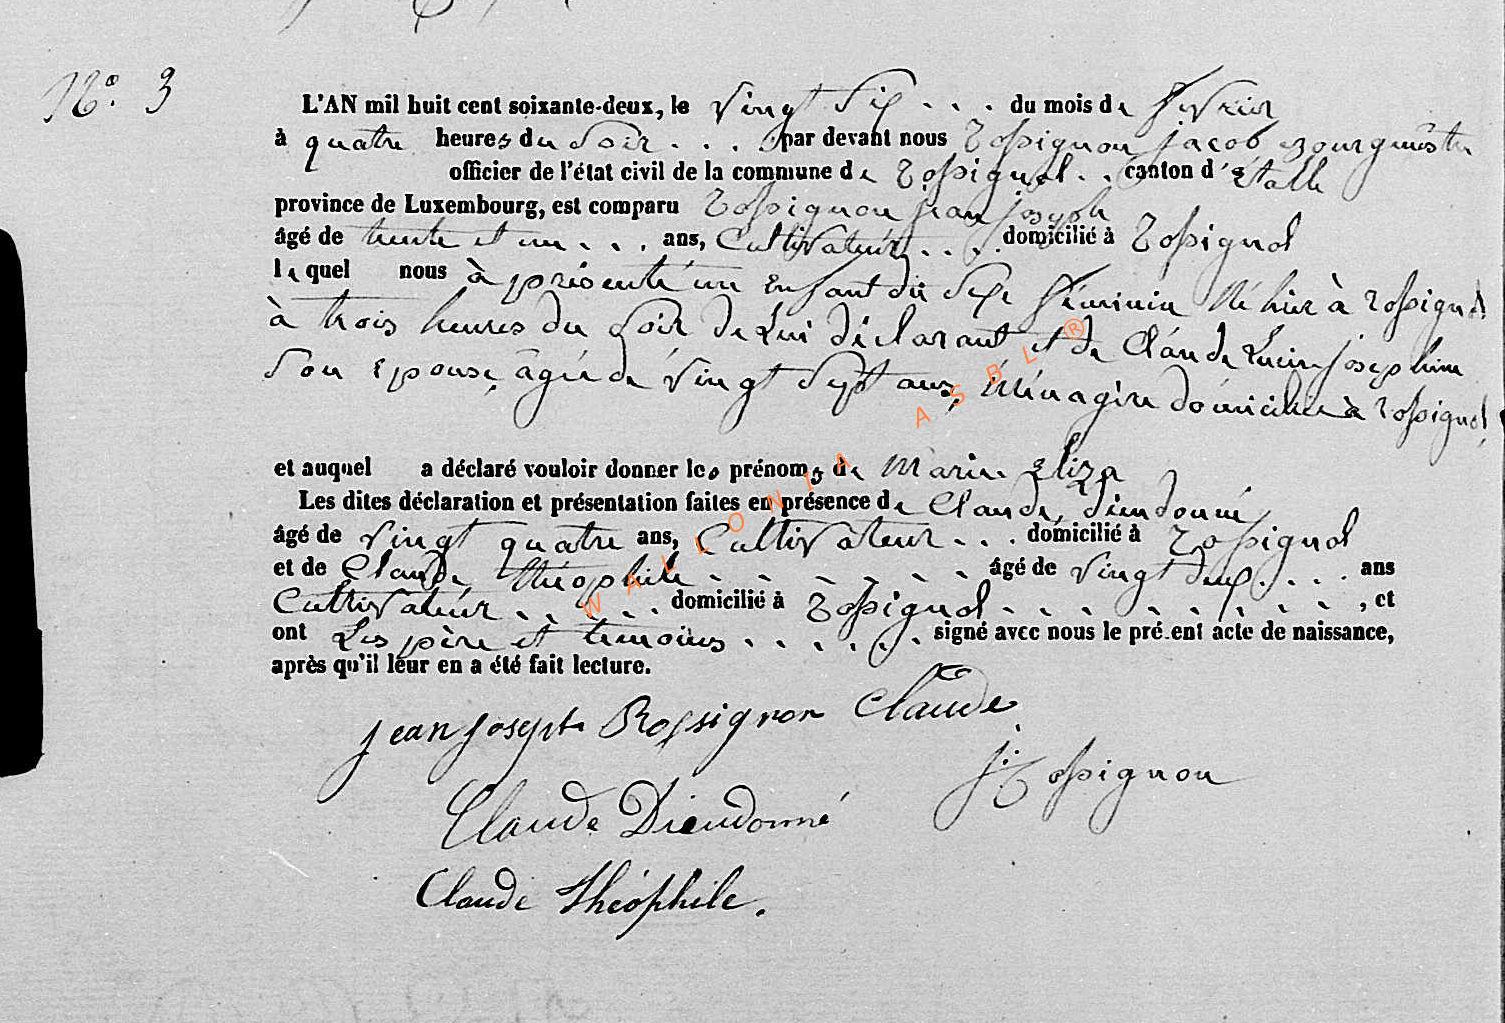 N.° 3
L'AN mil huit cent soixante-deux, le vingt six . . . du mois de fevrier
à quatre heures du soir . . . par devant nous Rossignon jacob Bourgmestre
officier de l'état civil de la commune de Rossignol . . canton d'Étalle
province de Luxembourg, est comparu Rossignon jean joseph
âgé de trente et un . . . ans, Cultivateur . . . domicilié à Rossignol
lequel nous à présenté un Enfant du sexe féminin Né hier à Rossignol
à trois heures du soir de Lui déclarant et de Claude Lucie josephine
son Epouse, âgée de vingt sept ans, Ménagère domiciliée à Rossignol
et auquel a déclaré vouloir donner les prénoms de Marie Eliza
Les dites déclaration et présentation faites en présence de Claude, Dieudonné
âgé de vingt quatre ans, Cultivateur . . . domicilié à Rossignol
et de Claude théophile . . . . . . âgé de vingt deux . . . . ans
Cultivateur . . . . . domicilié à Rossignol . . . . . . . . , et
ont Les père et temoins . . . . . . signé avec nous le présent acte de naissance,
après qu'il leur en a été fait lecture.
jean joseph Rossignon Claude
j: Rossignon
Claude Dieudonné
Claude Théophile.
WALLONIA ASBL ®